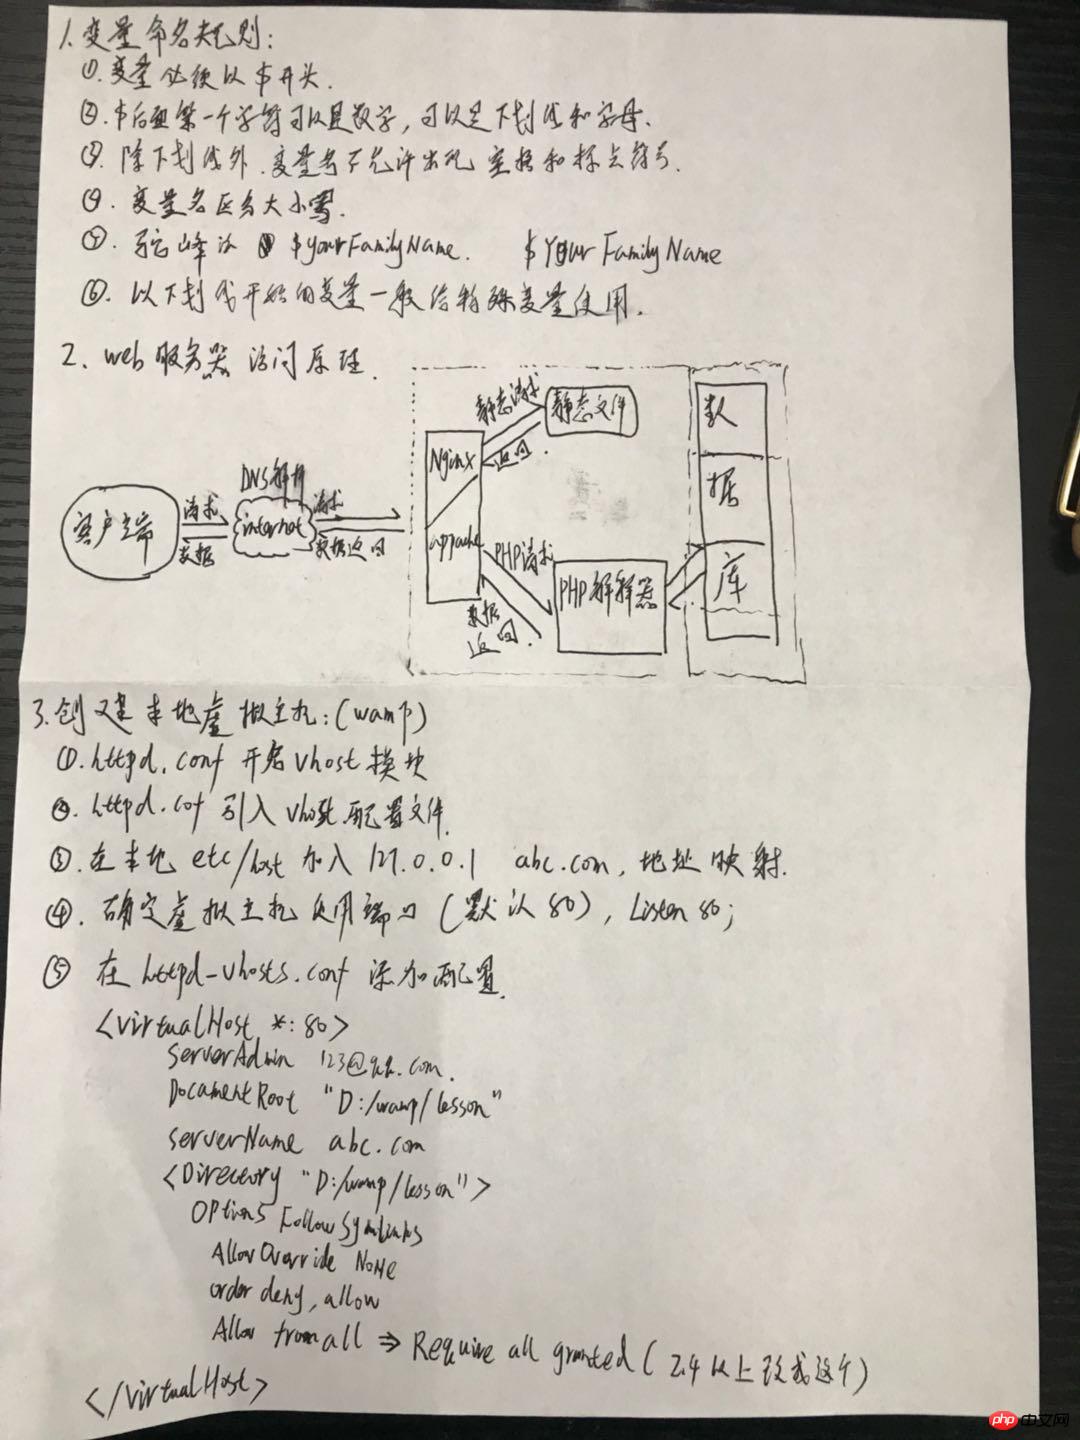 1. 变量命名规则:
①. 变量必须以$开头.
②. $后面第一个字符可以是数字, 可以是下划线和字母.
③. 除下划线外. 变量名不允许出现 空格和标点符号.
④. 变量名区分大小写.
⑤. 驼峰法 $yourFamilyName. $YourFamilyName
⑥. 以下划线开始的变量一般给特殊变量使用.
2. web服务器 访问原理.
静态请求
静态文件
返回.
数
据
库
Nginx
appache
DNS解析
客户端
请求
数据
internet
请求
数据返回
PHP请求
数据
返回.
PHP解释器
3. 创建本地虚拟主机: (wamp)
①. httpd.conf 开启vhost模块
②. httpd.cof 引入 vhost 配置文件.
③. 在本地 etc/host 加入 127.0.0.1 abc.com, 地址映射.
④. 确定虚拟主机使用端口 (默认80), Listen 80;
⑤ 在 httpd-vhosts.conf 添加配置.
<VirtualHost *:80>
ServerAdmin 123@qq.com.
DocamentRoot "D:/wamp/lesson"
ServerName abc.com
<Directory "D:/wamp/lesson">
OPtions FollowSymlinks
AllowOverride None
order deny, allow
Allow from all ⇒ Require all granted (2.4以上改成这个)
</VirtualHost>
php 中文网